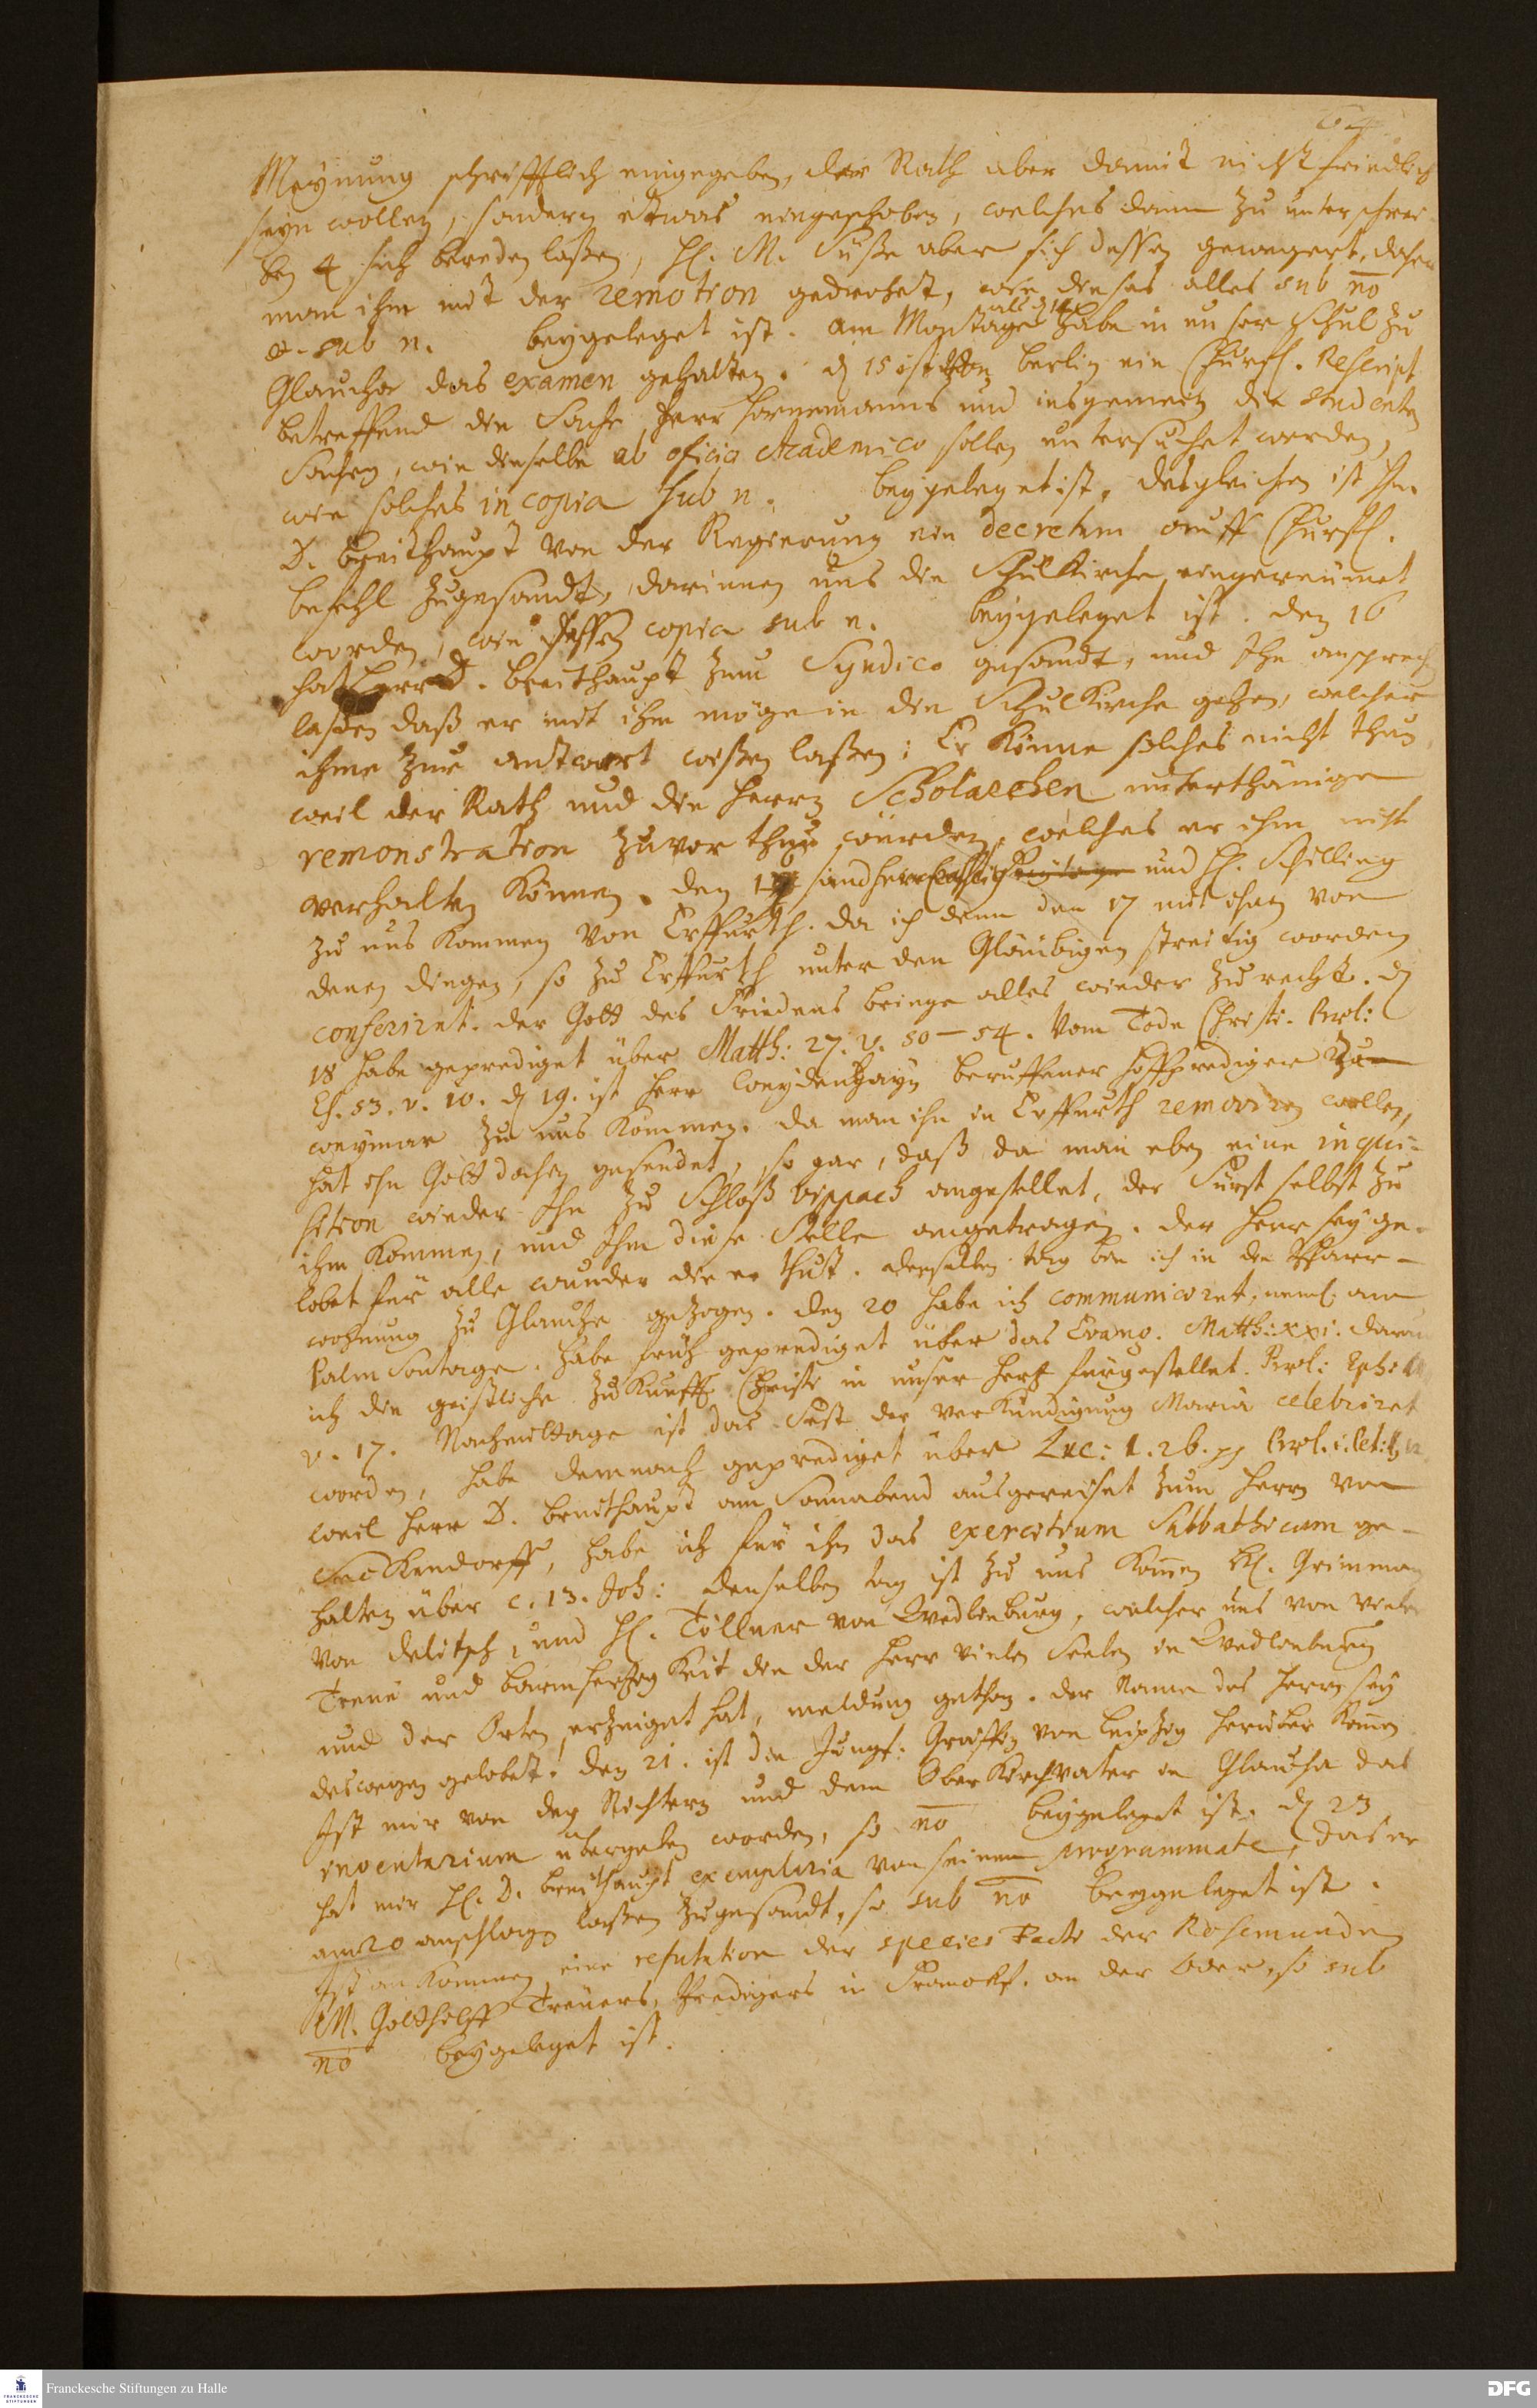 64
Meynung schrifftlich eingegeben, der Rath aber damit nicht friedlich
seyn wollen, sondern etwas eingeschoben, welches dann zu unterschrei-
ben 4 sich bereden laßen, H. M. Süße aber sich dessen gewegert, daher
man ihm mit der remotion gedrohet, wie dieses alles sub no
et sub n. beygeleget ist. am Montage als d 14 habe in unser Schul zu
Glaucha das examen gehalten. d 15 ist von Berlin ein Churfl. Rescript
betreffend die Sache Herr Hornemanns und insgemein die Studenten
Sachen, wie dieselbe ab officio Academico sollen untersuchet werden,
wie solches in copia sub n. beygeleget ist, desgleichen ist Hn.
D. Breithaupt von der Regierung ein decretum auff Churfl.
befehl zugesandt, darinnen uns die Schulkirche eingereumet
worden, wie dessen copia sub n. beygeleget ist. den 16
hat Herr D. Breithaupt zum Syndico gesandt, und Ihn ansprechen
laßen daß er mit ihm möge in die Schulkirche gehen, welcher
ihme zur antwort wißen laßen: Er könne solches nicht thun,
weil der Rath und die Herrn Scholarchen unterthänige
remonstration zuvor thun würden, welches er ihm nicht
verhalten können. den sind Herr und H. Schilling
zu uns kommen von Erffurth. da ich denn den 17 mit ihnen von
denen dingen, so zu Erffurth unter den Gläubigen streitig worden
conferiret. der Gott des Friedens bringe alles wieder zu recht. d
18 habe geprediget über Matth: 27. v. 50-54. vom Tode Christi. Prol:
Es. 53. v. 10. d 19. ist Herr Weydenhayn beruffener Hoffprediger zu
Weymar zu uns kommen. da man ihn in Erffurth removiren wollen,
hat ihn Gott dahin gesendet, so gar, daß da man eben eine inqui-
sition wieder Ihn zu Schloß Vippach angestellet, der Fürst selbst zu
ihm kommen, und Ihm diese Stelle angetragen. der Herr sey ge-
lobet für alle wunder die er thut. denselben tag bin ich in die Pfarr-
wohnung zu Glaucha gezogen. den 20 habe ich communiciret, neml. am
Palm Sontage. habe früh geprediget über das Evang. Matth: xxi. daraus
ich die geistliche Zukunfft Christi in unser Hertz fürgestellet. Prol: Eph:
v. 17. Nachmittage ist das Fest der Verkündigung Mariä celebriret
worden, habe demnach geprediget über Luc: 1. 26. pp Prol. 1. Pet: 1, 12
weil Herr D. Breithaupt am Sonnabend ausgereiset zum Herrn von
Seckendorff, habe ich für ihn das exercitium Sabbathicum ge-
halten über c. 13. Joh: denselben tag ist zu uns kommen H. Grimman
von Delitsch, und H. Töllner von Qvedlinburg, welcher uns von vieler
Treue und barmhertzigkeit die der Herr vielen Seelen in Qvedlinburg
und der Orten erzeiget hat, meldung gethan. der Name des Herrn sey
deswegen gelobet! den 21. ist die Jungf: von Leipzig herüber kommen
Ist mir von den Richtern und dem Ober Kirchvater in Glaucha das
inventarium übergeben worden, so no beygeleget ist. d 23
hat mir H. D. Breithaupt exemplaria von seinem programmate, das er
am 20 anschlagen laßen zugesandt, so sub no beygeleget ist.
Ist an kommen eine refutation der species Facti der Rosemunden
M. Gotthilff Treuers, Predigers in Franckf. an der Oder, so sub
no beygeleget ist.
Franckesche Stiftungen zu Halle
DFG